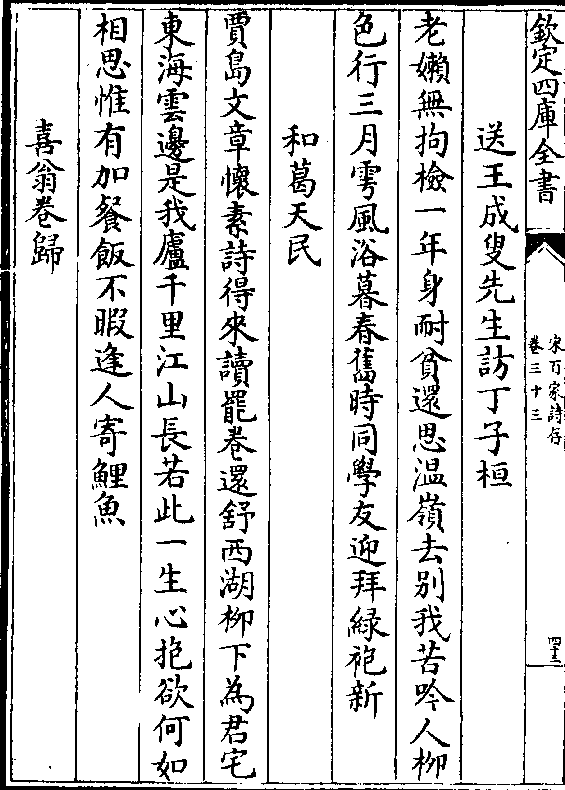 欽定四庫全書
宋百家詩存
卷三十三
送王成叟先生訪丁子桓
老嬾無拘檢一年身耐貧還思温嶺去别我苦吟人柳
色行三月雩風浴暮春舊時同學友迎拜緑袍新
和葛天民
賈島文章懷素詩得來讀罷卷還舒西湖柳下為君宅
東海雲邊是我廬千里江山長若此一生心抱欲何如
相思惟有加餐飯不暇逢人寄鯉魚
喜翁卷歸